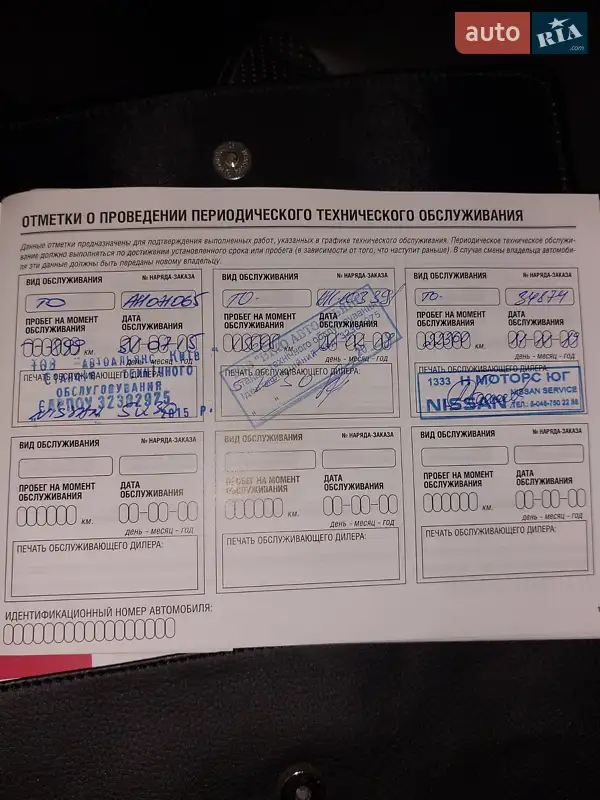 auto RIA .com
ОТМЕТКИ О ПРОВЕДЕНИИ ПЕРИОДИЧЕСКОГО ТЕХНИЧЕСКОГО ОБСЛУЖИВАНИЯ
Данные отметки предназначены для подтверждения выполненных работ, указанных в графике технического обслуживания. Периодическое техническое обслужи-
вание должно выполняться по достижении установленного срока или пробега (в зависимости от того, что наступит раньше). В случае смены владельца автомоби-
ля эти данные должны быть переданы новому владельцу.
ВИД ОБСЛУЖИВАНИЯ № НАРЯДА-ЗАКАЗА
ТО
ПРОБЕГ НА МОМЕНТ ОБСЛУЖИВАНИЯ
ДАТА ОБСЛУЖИВАНИЯ
км.
ПЕЧАТЬ ОБСЛУЖИВАЮЩЕГО ДИЛЕРА:
ТОВ "АВТОАЛЬЯНС КИЇВ"
ОБСЛУГОВУВАННЯ
ЄДРПОУ 32392925
2015 р.
ВИД ОБСЛУЖИВАНИЯ № НАРЯДА-ЗАКАЗА
ТО.
ПРОБЕГ НА МОМЕНТ ОБСЛУЖИВАНИЯ
ДАТА ОБСЛУЖИВАНИЯ
день - месяц - год
ВИД ОБСЛУЖИВАНИЯ № НАРЯДА-ЗАКАЗА
ТО. 34874
ПРОБЕГ НА МОМЕНТ ОБСЛУЖИВАНИЯ
ДАТА ОБСЛУЖИВАНИЯ
км.
день - месяц - год
ПЕЧАТЬ ОБСЛУЖИВАЮЩЕГО ДИЛЕРА:
1333 Н МОТОРС ЮГ
NISSAN NISSAN SERVICE
ВИД ОБСЛУЖИВАНИЯ № НАРЯДА-ЗАКАЗА
ПРОБЕГ НА МОМЕНТ ОБСЛУЖИВАНИЯ
ДАТА ОБСЛУЖИВАНИЯ
км.
день - месяц - год
ПЕЧАТЬ ОБСЛУЖИВАЮЩЕГО ДИЛЕРА:
ВИД ОБСЛУЖИВАНИЯ № НАРЯДА-ЗАКАЗА
ПРОБЕГ НА МОМЕНТ ОБСЛУЖИВАНИЯ
ДАТА ОБСЛУЖИВАНИЯ
км.
день - месяц - год
ПЕЧАТЬ ОБСЛУЖИВАЮЩЕГО ДИЛЕРА:
ВИД ОБСЛУЖИВАНИЯ № НАРЯДА-ЗАКАЗА
ПРОБЕГ НА МОМЕНТ ОБСЛУЖИВАНИЯ
ДАТА ОБСЛУЖИВАНИЯ
км.
день - месяц - год
ПЕЧАТЬ ОБСЛУЖИВАЮЩЕГО ДИЛЕРА:
ИДЕНТИФИКАЦИОННЫЙ НОМЕР АВТОМОБИЛЯ: